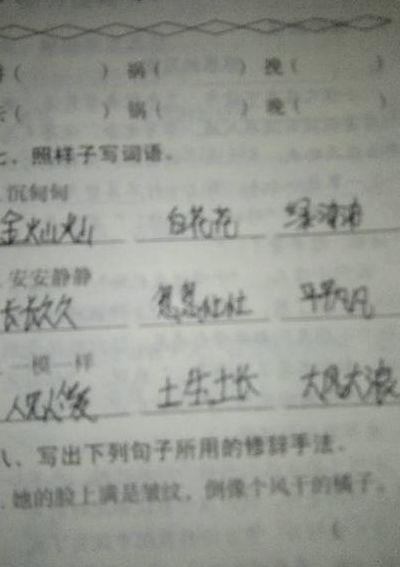 ( ) 祸( ) 挽( )
( ) 锅( ) 晚( )
七、照样子写词语。
沉甸甸
金灿灿 白花花 绿油油
安安静静
长长久久 忽忽忙忙 平平凡凡
一模一样
土生土长 大风大浪
八、写出下列句子所用的修辞手法。
她的脸上满是皱纹，倒像个风干的橘子。
( )